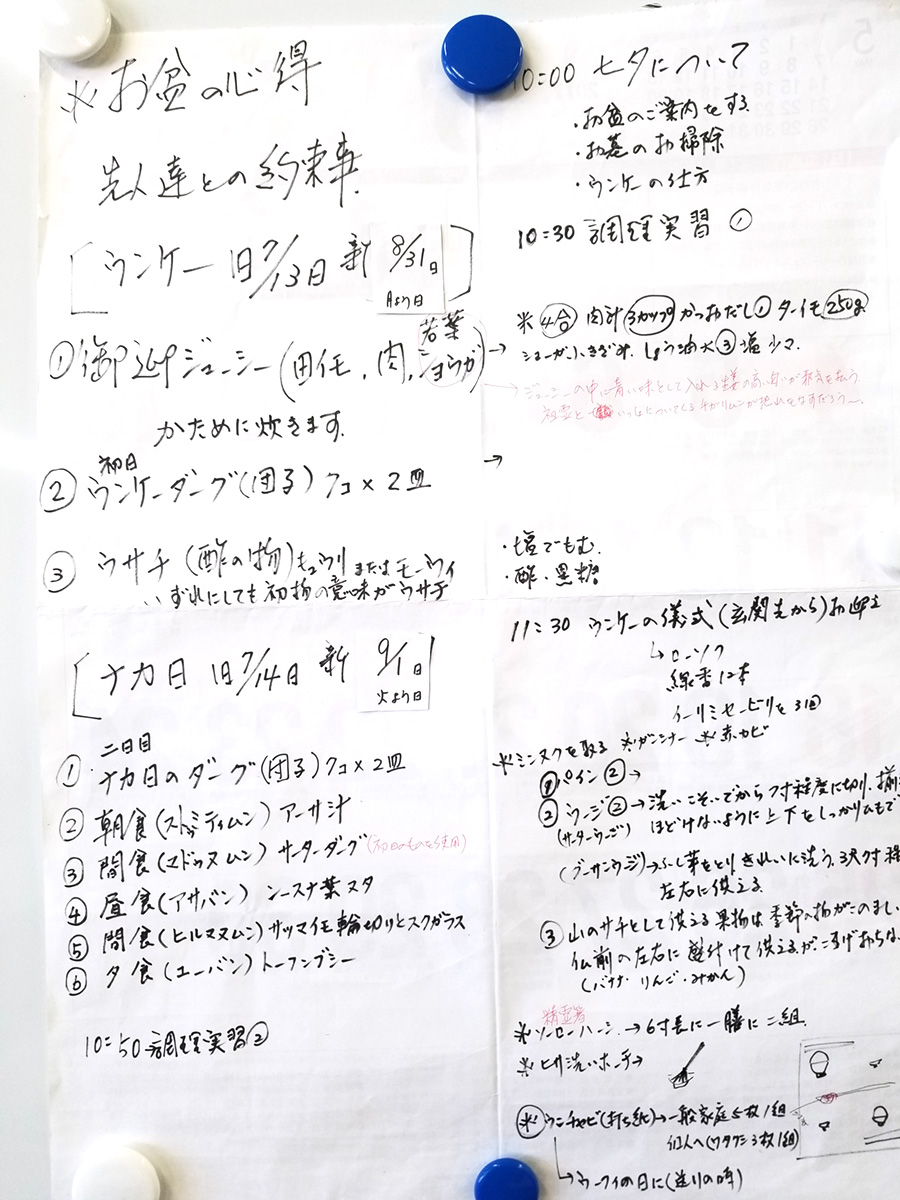 ※お盆の心得
先人達との約束事
[ウンケー 旧7/13日 新 8/31日]
月よう日
若葉
①御迎ジューシー(田イモ、肉、ショウガ)→
かために炊きます。
初日
②ウンケーダーグ(団子)7コ×2皿 →
③ウサチ(酢の物)キュウリまたはモーウィ
いずれにしても初物の意味がウサチ
[ナカ日 旧7/14日 新 9/1日]
火よう日
二日目
①ナカ日のダーグ(団子)7コ×2皿
②朝食(ストゥミティムン)アーサ汁
③間食(マドゥヌムン)サーターダーグ(初日のものを使用)
④昼食(アサバン)ンースナ葉スタ
⑤間食(ヒルマヌムン)サツマイモ輪切りとスクガラス
⑥夕食(ユーバン)トーフンブシー
10=50調理実習②
10:00 七夕について
・お盆のご案内をする
・お墓のお掃除
・ウンケーの仕方
10=30 調理実習①
※④合 肉汁3カップ かつおだし① ターイモ250g
ショーガ小さざみ しょう油大③ 塩少々
→ジューシーの中に青い味として入れる
・塩でもむ
・酢・黒糖
11=30 ウンケーの儀式(玄関先から)お迎え
↳ローソク
線香12本
イーリミセービリを3回
※ミンヌクを取る ※ガンシナー ※赤カビ
①パイン②→
②ウージ②→洗いこそいでから7寸程度に切り、揃
(サーターウージ) ほどけないように上下をしっかりむもで
(グーサンウージ)→ふし芽をとりきれいに洗う。3尺7寸
左右に供える
③山のサチとして供える果物は季節の物がこのまし
仏前の左右に盛付けて供えるがころげおちな
(バナナ・りんご・みかん)
精霊箸
※ソーローハーシ→6寸長に一膳に二組
※ヒサ洗いホーチ→
※ウンチャビ(打ち紙)→一般家庭5枚1組
個人へ(ワタクシ3枚1組)
↳ウークイの日に(送りの時)